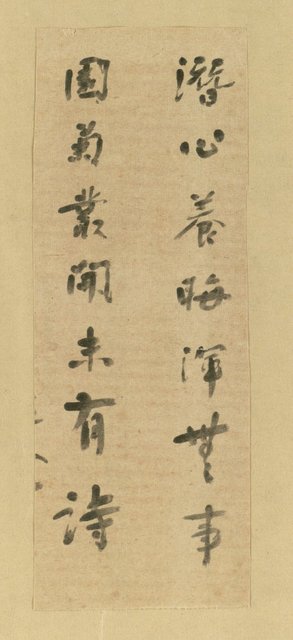 潛心養晦渾無事
園菊叢開未有詩